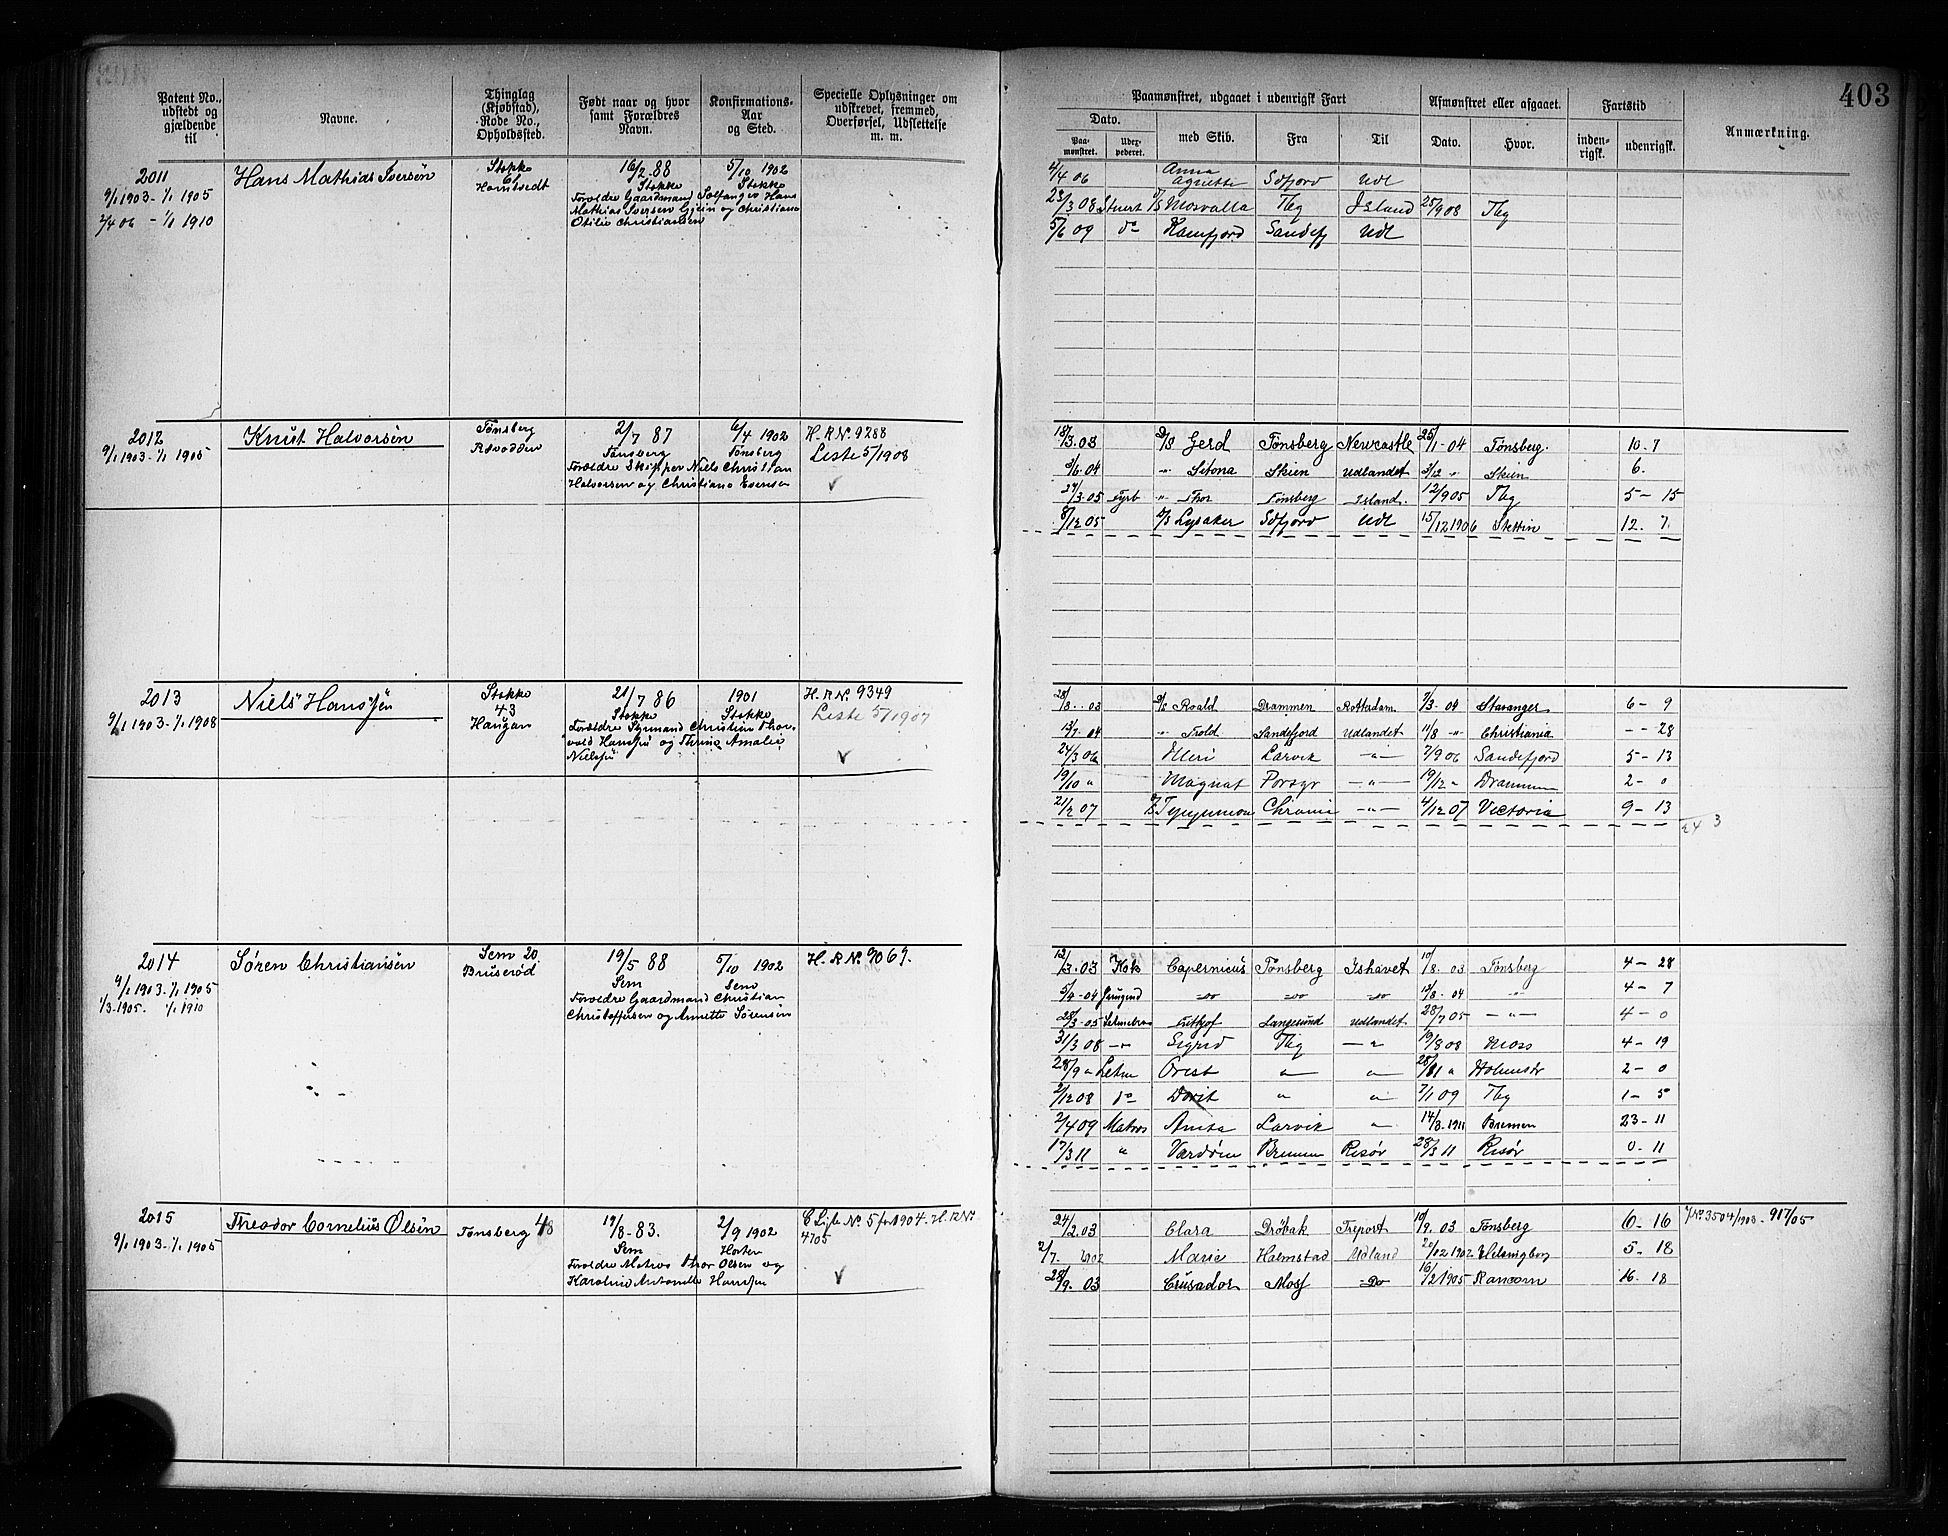 403
Patent No., udstedt og gjældende til
Navne.
Thinglag (Kjøbstad), Rode No., Opholdssted.
Født naar og hvor samt Forældres Navn.
Konfirmations-Aar og Sted.
Specielle Oplysninger om udskrevet, fremmed, Overførsel, Udslettelse m. m.
Paamønstret, udgaaet i udenrigsk Fart
Afmønstret eller afgaaet.
Fartstid
Anmærkning.
Dato.
med Skib.
Fra
Til
Dato.
Hvor.
inden-rigsk.
udenrigsk.
Paa-mønstret.
2011
9/1 1903 - 1/1 1905
2/4 06 - 1/1 1910
Hans Mathias Iversen
Stokke
61
16/2 88
Stokke
Forældre Gaardmand Sælfanger Hans
Mathias Iversen Gjein og Christiane
Otilie Christiansen
5/10 1902
Stokke
4/4 06 Anna Agnette Sdfjord Udl
23/3 08 Stuert Mosvalla Tbg Island 25/9 08 Tbg
5/6 09 do Kamfjord Sandefj Udl
2012
9/1 1903 - 1/1 1905
Knut Halvorsen
Tønsberg
2/7 87
Tønsberg
Forældre Skipper Niels Christian
Halvorsen og Christiane Evensen
6/4 1902
Tønsberg
H. R. No. 9288
Liste 5/1908
18/3 03 Gerd Tønsberg Newcastle 25/1 - 04 Tønsberg. 10. 7
3/6 04 Skien Udlandet 3/12 " Skien 6.
27/3 05 Fyrb " Thor Tønsberg Island. 12/9 05 Tbg 5 - 15
8/12 05 Lysaker Sdfjord Udl 15/12 1906 Stettin 12. 7.
2013
9/1 1903 - 1/1 1908
Niels Hanssen
Stokke
43
Haugan
21/7 86
Stokke
Forældre Styrmand Christian Thor-
vald Hanssen og Thrine Amalie
Nielsen
1901
Stokke
H. R No. 9349
Liste 5/1907
28/8 03 Roald Drammen Rotterdam 7/3 - 04 Stavanger 6 - 9
13/7 04 " Trold Sandefjord Udlandet 11/8 " Christiania - - 28
24/3 06 Larvik - " - 7/9 06 Sandefjord 5 - 13
19/10 " Magnat Porsgr - " - 19/12 " Drammen 2 - 0
21/2 07 Chrania - " - 4/12 07 Victoria 9 - 13
24 3
2014
9/1 1903 - 1/1 1905
1/3 1905. 1/1 1910
Søren Christiansen
Sem 20.
Bruserød
19/5 88
Sem
Forældre Gaardmand Christian
Christoffersen og Annette Sørensen
5/10 1902
Sem
H. R No. 9069.
12/3 - 03 Kok Capernicus Tønsberg Ishavet 10/8 - 03 Tønsberg 4 - 28
5/4 - 04 Jungmd do do do 12/8 - 04 " 4 - 7
28/3 - 05 Fritjof Langesund Udlandet 28/7 05 - " - 4 - 0
31/3 08 - " Sigrid Tbg - " 19/8 08 Moss 4 - 19
28/9 " Letm Orest " " 28/11 " Holmestr 2 - 0
2/12 08 do Dovit " " 7/1 09 Tbg 1 - 5
2/4 09 Matros Anita Larvik " 14/3 - 1911 Bremen 23 - 11
17/3 11 " Vardøen Bremen Risør 28/3 11 Risør 0 - 11
2015
9/1 1903 - 1/1 1905
Theodor Cornelius Olsen
Tønsberg 48
19/8 - 83.
Sem
Forældre Matros Thor Olsen og
Karoline Antonette Hanssen
2/9 1902
Horten
C Liste No. 5 for 1904. H. R No.
4705
24/2 03 Clara Drøbak Treport 10/9. 03 Tønsberg 6 - 16
2/7. 1902 Marie Halmstad Udland 20/12 1902 Helsingborg 5 - 18
28/9. 03 Crusader Moss Do 16/2 1905 Rancorn 16. 18
JNo 3504/1903 - 917/05